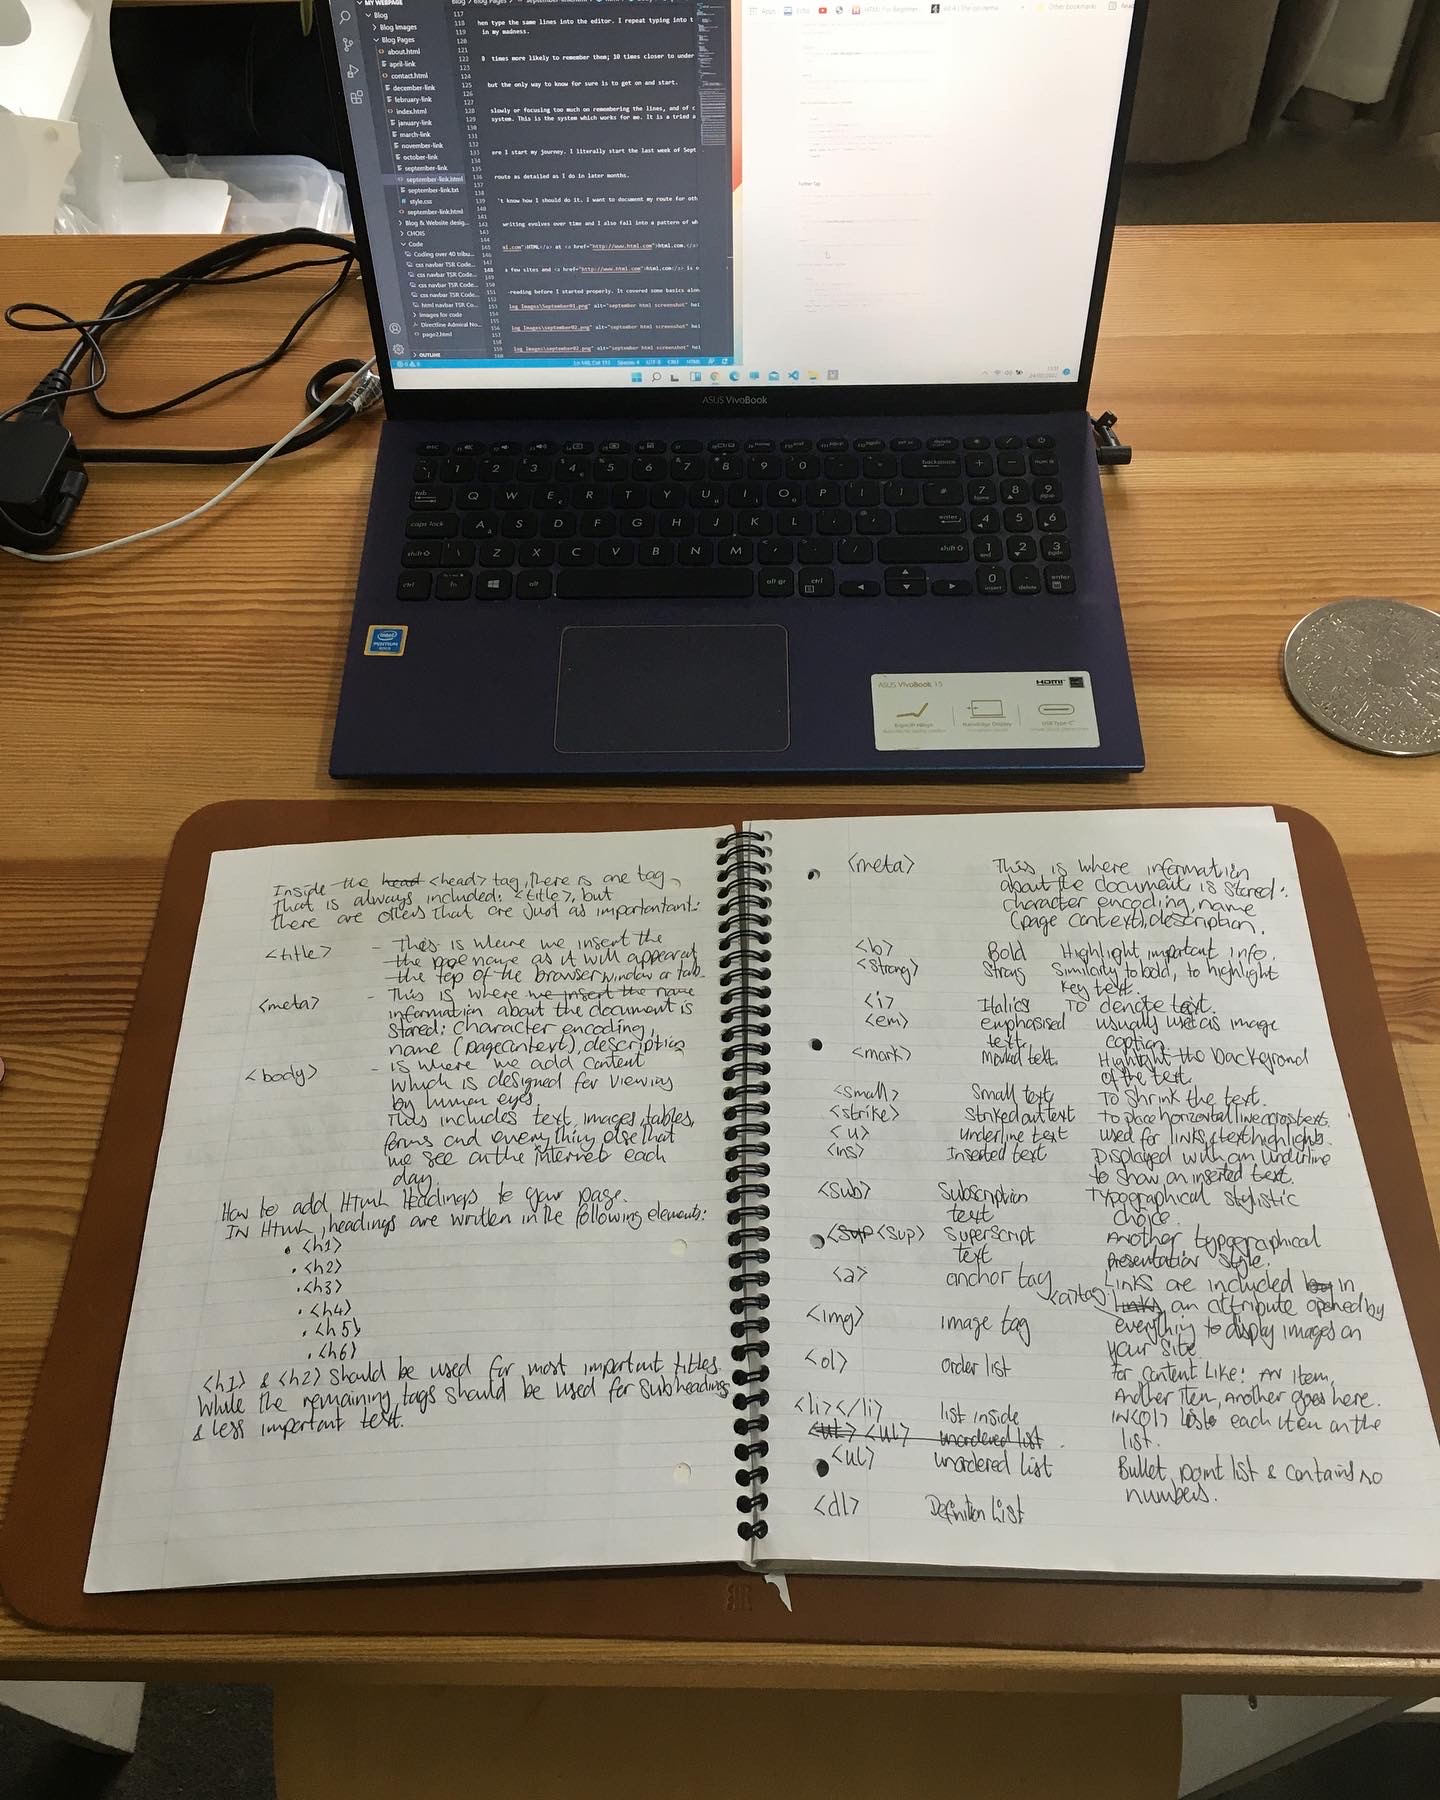 MY WEBPAGE
Blog
Blog Images
Blog Pages
about.html
april-link
contact.html
december-link
february-link
index.html
january-link
march-link
november-link
october-link
september-link
september-link.html
september-link.txt
style.css
september-link.html
Blog & Website desig...
CHOIS
Code
Coding over 40 tribu...
css navbar TSR Code...
css navbar TSR Code...
css navbar TSR Code...
html navbar TSR Co...
Images for code
Directline Admiral No...
page2.html
OUTLINE
hen type the same lines into the editor. I repeat typing into t
in my madness.
times more likely to remember them; 10 times closer to under
but the only way to know for sure is to get on and start.
slowly or focusing too much on remembering the lines, and of c
system. This is the system which works for me. It is a tried a
ere I start my journey. I literally start the last week of Sept
route as detailed as I do in later months.
't know how I should do it. I want to document my route for oth
writing evolves over time and I also fall into a pattern of wh
ml.com">HTML</a> at <a href="http://www.html.com">html.com.</a>
a few sites and <a href="http://www.html.com">html.com</a> is o
-reading before I started properly. It covered some basics alon
log Images\September01.png" alt="september html screenshot" hei
log Images\september02.png" alt="september html screenshot" hei
log Images\september02.png" alt="september html screenshot" hei
Further Tags
ASUS VivoBook
esc
backspace
tab
Q W E R T Y U I O P
caps lock A S D F G H J K L
enter
shift Z X C V B N M
shift
ctrl fn alt alt gr ctrl
intel
PENTIUM
ASUS VivoBook 15
HDMI
ErgoLift Hinge
NanoEdge Display
USB Type-C
Inside the head <head> tag, there is one tag
that is always included: <title>, but
there are others that are just as importantant:
<title> - This is where we insert the
the page name as it will appear at
the top of the browser window or tab.
<meta> - This is where we insert the name
information about the document is
stored: character encoding,
name (page context), description
<body> - is where we add content
which is designed for viewing
by human eyes.
This includes text, images, tables,
forms and everything else that
we see on the internet each
day.
How to add Html Headings to your page.
IN Html, headings are written in the following elements:
• <h1>
• <h2>
• <h3>
• <h4>
• <h5>
• <h6>
<h1> & <h2> should be used for most important titles
While the remaining tags should be used for subheadings
& less important text.
<meta> This is where information
about the document is stored:
character encoding, name
(page context), description.
<b> Bold Highlight important info.
<strong> Strong Similarly to bold, to highlight
key text.
<i> Italics To denote text.
<em> emphasised usually used as image
text. caption.
<mark> Marked text. Highlight the background
of the text.
<small> Small text To shrink the text.
<strike> striked out text To place horizontal line across text.
<u> underline text used for links, & text highlights.
<ins> Inserted text Displayed with an underline
to show an inserted text.
<sub> Subscription Typographical stylistic
text choice.
<sup <sup> superscript Another typographical
text presentation style.
<a> anchor tag Links are included by in
<a> tag. Links an attribute opened by
<img> image tag everything to display images on
your site.
<ol> order list For content like: An item,
Another item, Another goes here.
<li></li> list inside IN <ol> lists each item on the
list.
<ut> <ul> unordered list
<ul> unordered list Bullet point list & contains no
numbers.
<dl> Definition List